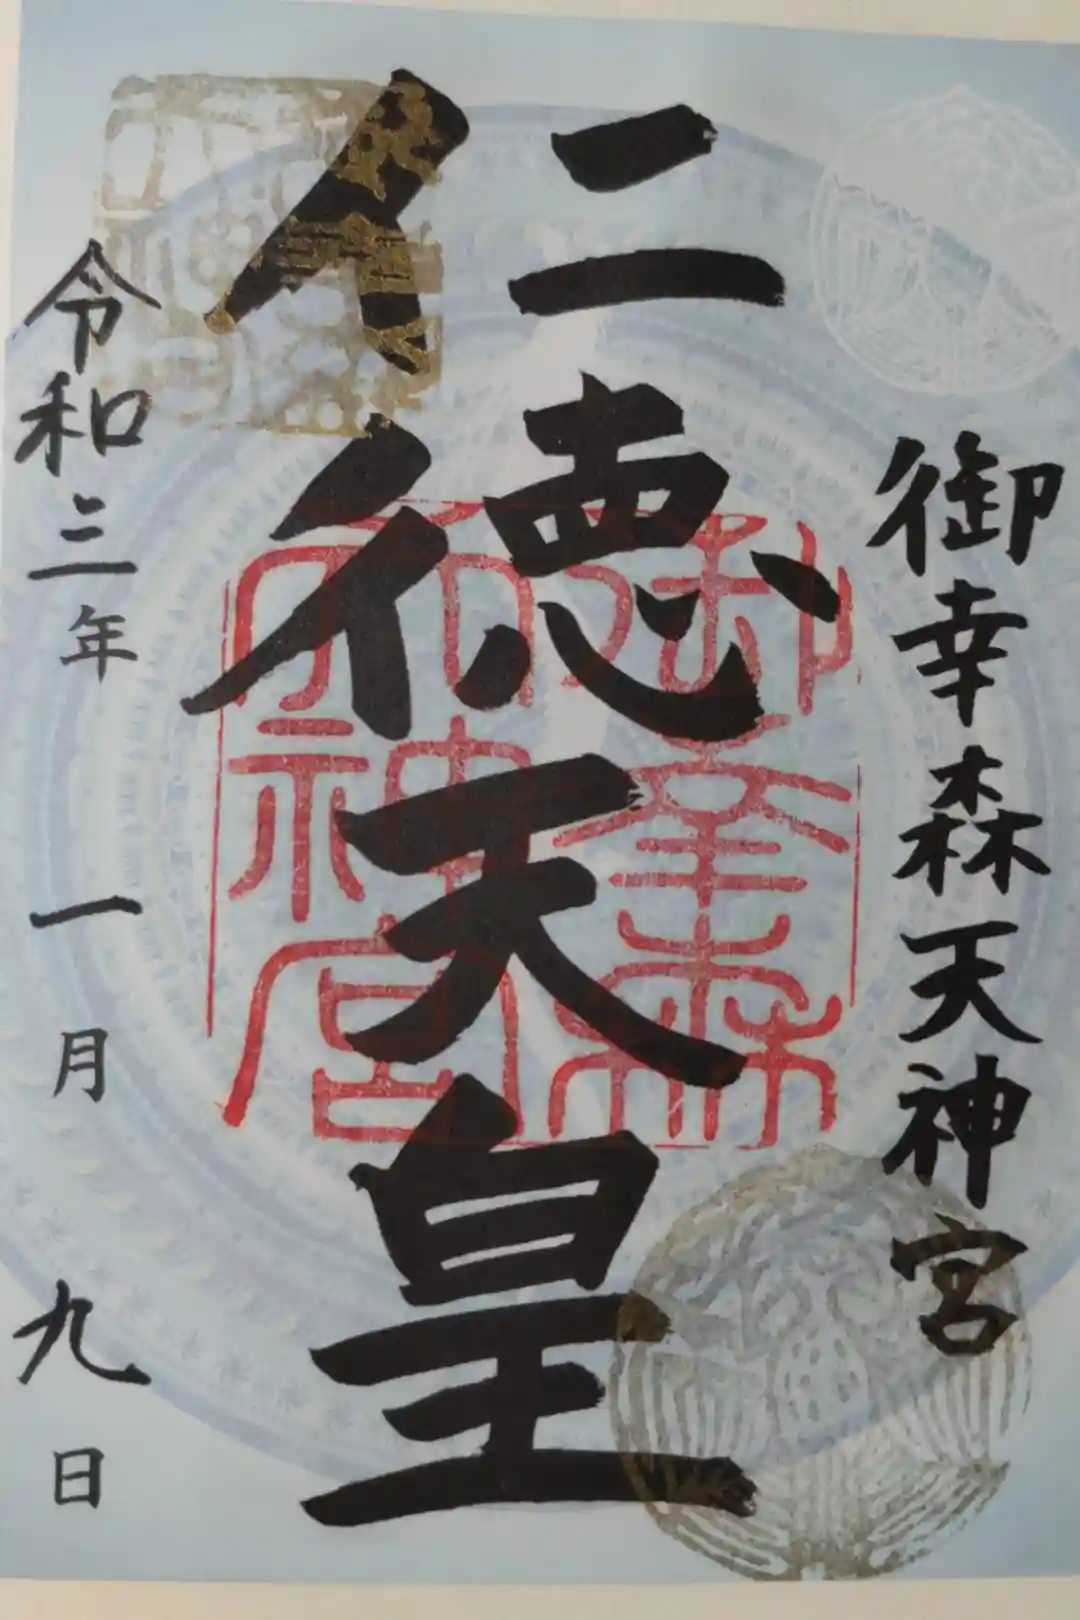 御幸森天神宮
仁徳天皇
令和三年一月九日
御幸森天神宮